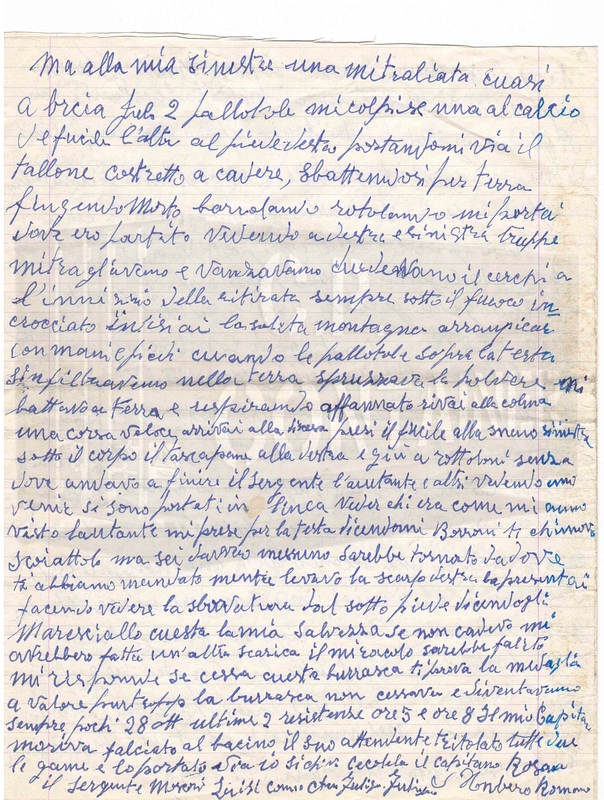 Ma alla mia sinestre una mitraliata cuasi
a brcia 2 pallotole mi colpise una al calcio
de fucile l'altr al piede destro portandomi via il
tallone costretto a cadere, sbattendosi per terra
fingendo Morto barrolando rotolando mi portai
dove ero partito vedendo a destra e sinistra truppe
mitragliaveno e vanzavano il cerchi a
l'innisizio della ritirata sempre sotto il fuoco in
crocciato inisiai la salita montagna arrampicar
con mani piedi cuando le pallotole sopra la testa
s'infiltraveno nella terra spruzzava la polvere mi
battavo a terra e respirando affannato rivai alla colma
una corsa veloce arrivai alla discesa presi il fucile alla meno sinistra
sotto il corpo il tascapane alla destra e giù a rottoloni senza
dove andavo a finire il sergente l'autante e altri vedendo uno
venir si sono portati in linca veder chi era come mi anno
visto lautante mi prese per la testa dicendomi Bononi ti chimavo
scoiattolo ma sei davvero nessuno sarebbe tornato da dove
ti abbiamo mandato mentre levavo la scarpa destra la presentai
facendo vedere la sbravatura dal sotto piede dicendogli
Maresciallo cuesta la mia salvezza se non cadevo mi
avrebbero fatta un'altra scarica il miracolo sarebbe falito
mi risponde se cessa cuesta burrasca ti prova la medaglia
a valore purtropp la burrasca non cessava e diventavamo
sempre pochi 28 ott ultime 2 resistenze ore 5 e ore 8 Il mio Capitan
moriva falciato al bacino il suo attendente tritolato tutte due
le game e lo portato via io il capitano Rosan
il sergente Mosconi Luisi como Romano